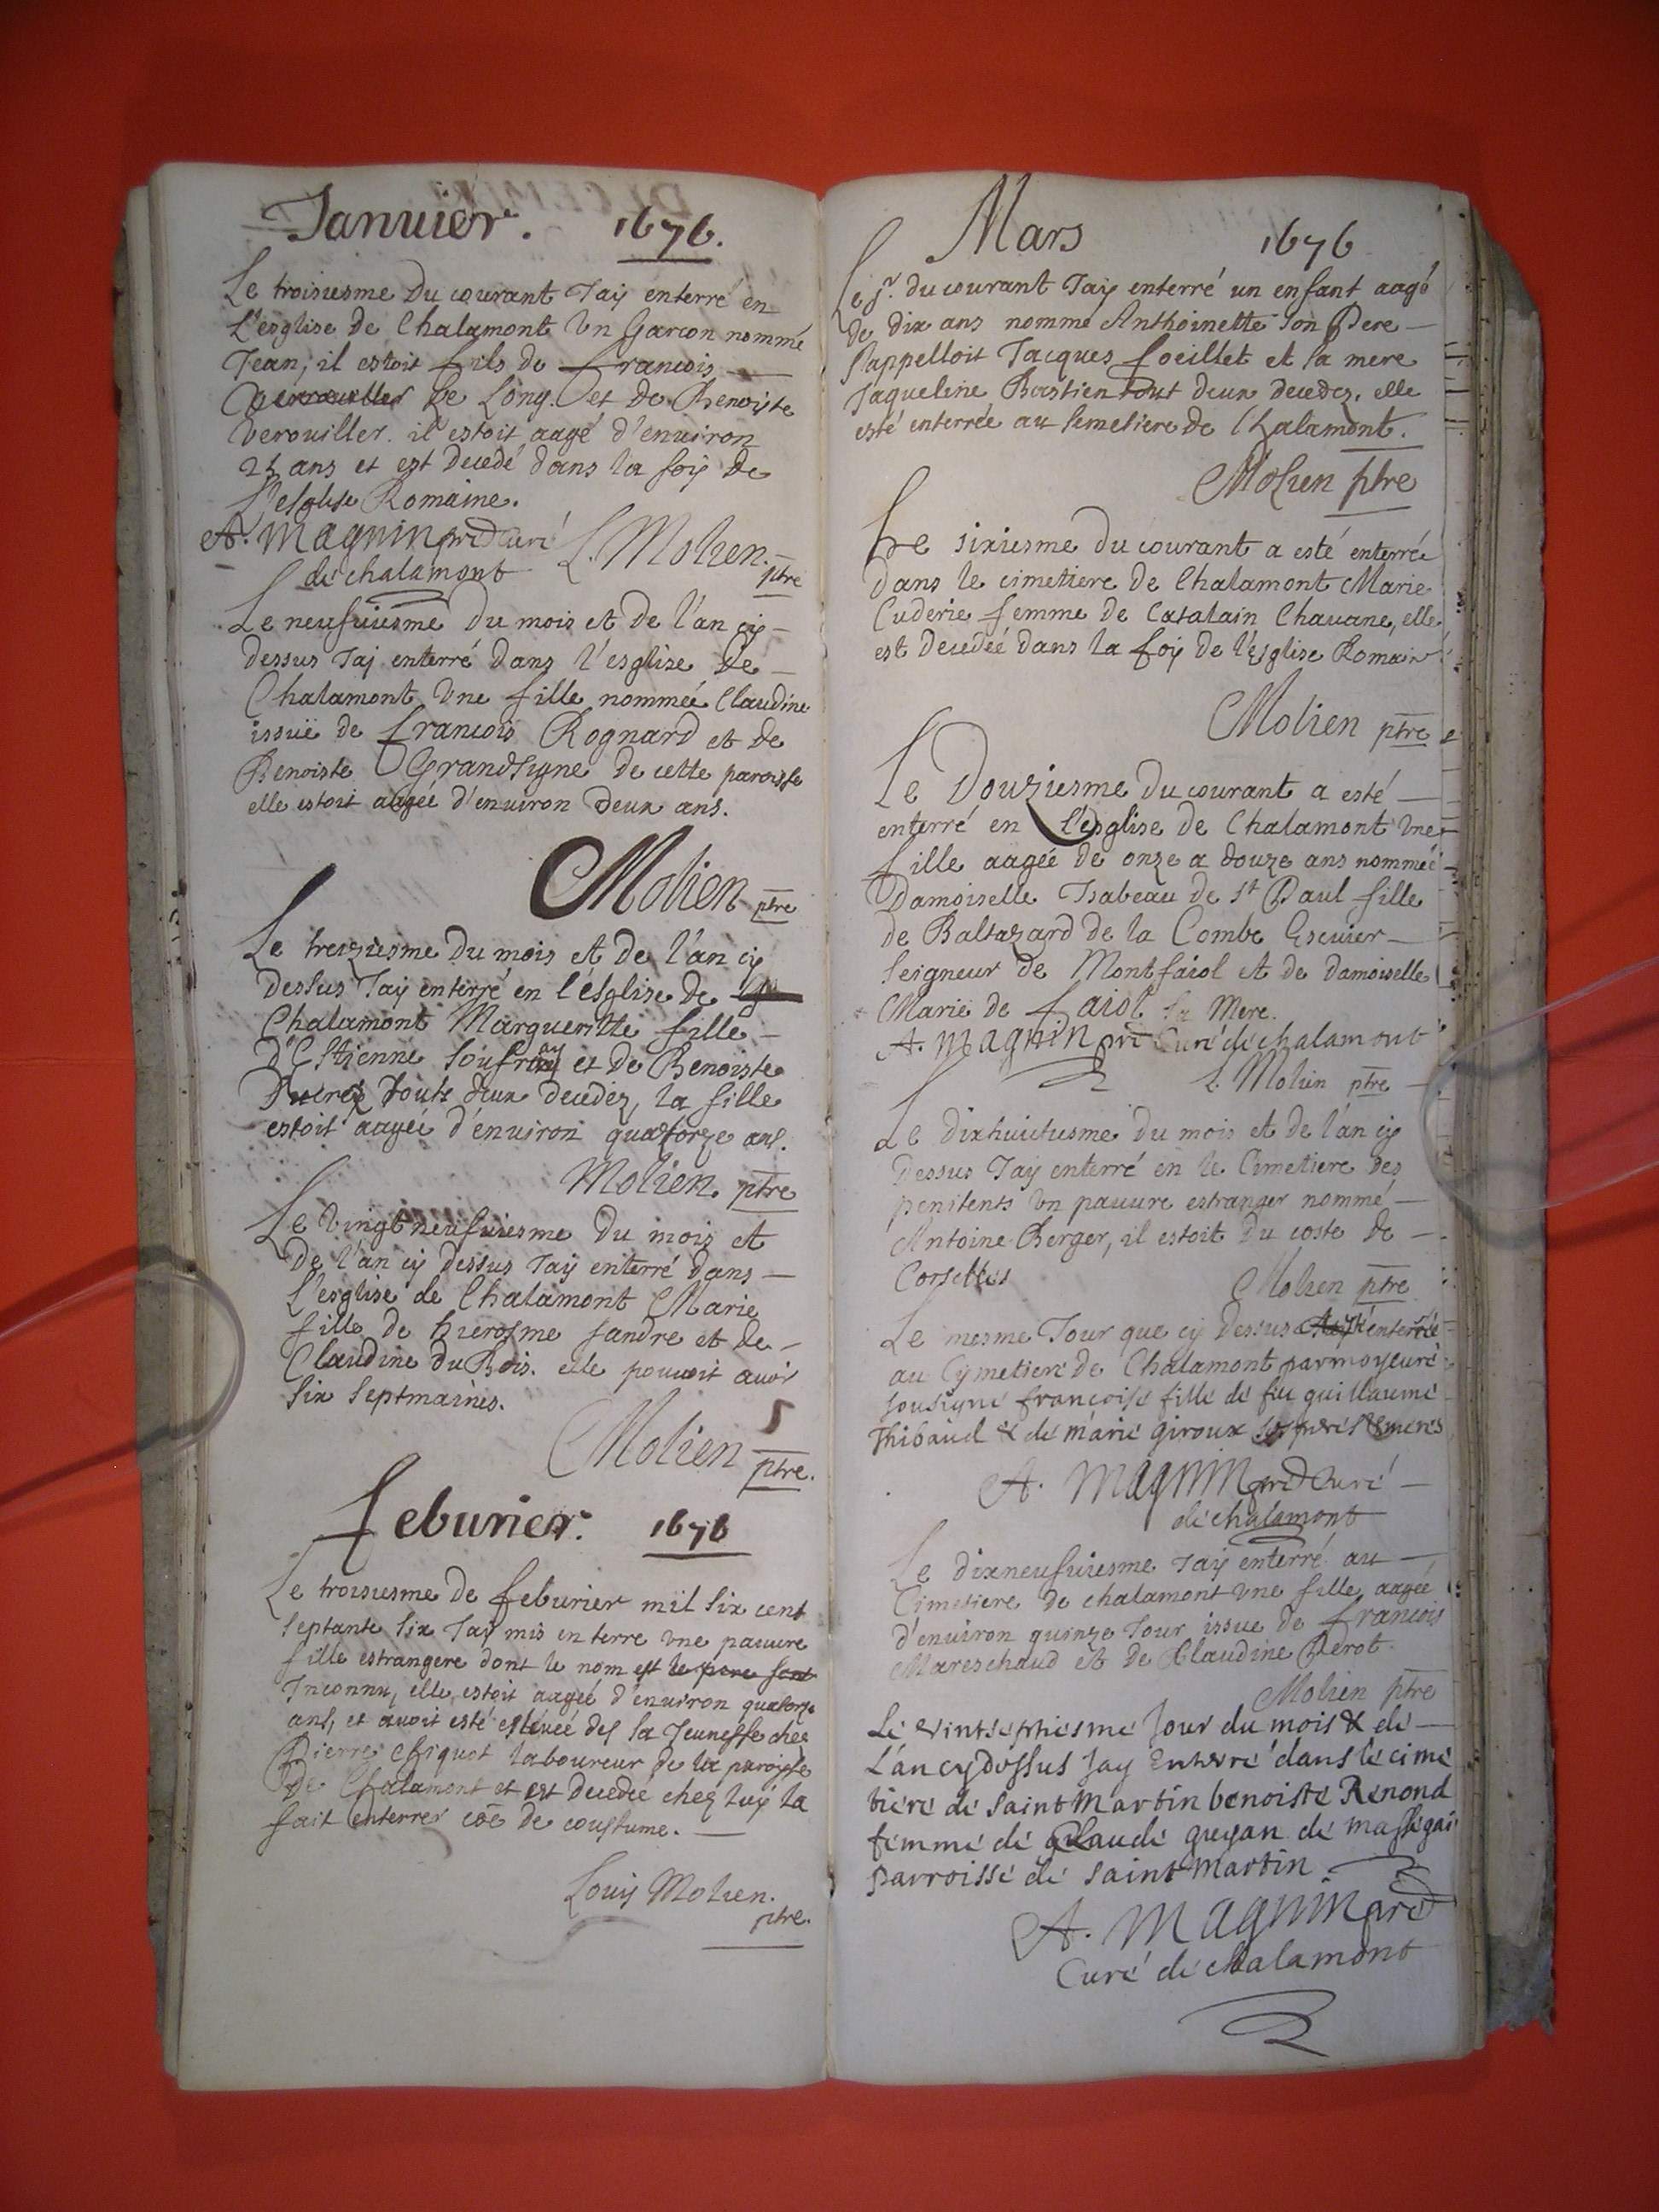 Januier. 1676.
Le troisiesme du courant Jaÿ enterré en
L'esglise de Chalamont Vn Garcon nommé
Jean, il estoit fils de francois
Le Long. et de Benoiste
Verouiller. il estoit aagé d'enuiron
25 ans et est decedé dans la foiÿ de
L'esglise Romaine.
A. Magnin pre Curé
de chalamont
L. Molien.
ptre
Le neufuiesme du mois et de l'an cy
dessus Jaj enterré dans l'esglise de
Chalamont Vne fille nommée Claudine
issuë de francois Rognard et de
Benoiste Grandsigne de cette paroisse
elle estoit aagée d'enuiron deux ans.
Molien ptre
Le treziesme du mois et de l'an cy
dessus Jaÿ enterré en l'ésglise de
Chalamont Margueritte fille
D'Estienne Soufray et de Benoiste
touts deux decedez, la fille
estoit aagée d'énuiron quattorze ans.
Molien. ptre
Le Vingtneufuiesme du mois et
de l'an cy dessus Jaÿ enterré dans
L'esglise de Chalamont Marie
fille de hierosme fandre et de
Claudine du Bois. elle pouuoit auoir
six septmaines.
Molien ptre.
feburier. 1676
Le troisiesme de feburier mil six cent
septante six Jaÿ mis en terre vne pauure
fille estrangere dont le nom est le pere sont
Inconnu, elle estoit aagée d'énuiron quatorze
ans, et auoit esté esleuée des sa Jeunesse chez
Pierre Chiquot laboureur de la paroisse
de Chalamont et est decedée chez luÿ la
fait enterrer cõe de coustume.
Louis Molien.
ptre.
Mars 1676
Le 5r. du courant Jaÿ enterré un enfant aagé
de dix ans nommé Anthoinette son Pere
s'appelloit Jacques foeillet et sa mere
Jaqueline Bastien tout deux decedez, elle
esté enterrée au semetiere de Chalamont.
Molien ptre
Le sixiesme du courant a esté enterrée
dans le cimetiere de Chalamont Marie
Cuderie femme de Catalain Chauane, elle
est decedée dans la foÿ de l'ésglise Romain
Molien ptre
Le Douziesme du courant a esté
enterré en L'ésglise de Chalamont Vne
fille aagée de onze a douze ans nommée
Damoiselle Isabeau de St Paul fille
de Baltazard de la Combe Escuier
Seigneur de Montfaiol et de damoiselle
Marie de faiol Sa Mere.
A. Magnin pre Curé de chalamont
L. Molien ptre
Le dixhuictiesme du mois et de l'an cy
dessus Jaÿ enterré en le Cimetiere des
penitents Vn pauure estranger nommé
Antoine Berger, il estoit du coste de
Corselles
Molien ptre
Le mesme Jour que cy dessus enterrée
au Cymetiere de Chalamont par moy curé
sousigné françoise fille de feu guillaume
Thibaud & de marie giroux ses peres & meres
A. Magnin pre Curé
de chalamont
Le dixneufuiesme Jaÿ enterré au
Cimetiere de chalamont vne fille aagée
d'enuiron quinze Jour issue de francois
Mareschaud et de Claudine Perot.
Molien ptre
Le vintseptiesme Jour du mois & de
L'an cy dessus Jay Enterré dans le cime
tiere de saint Martin benoiste Renond
femme de Claude guyan de massegai
parroisse de saint Martin
A. Magnin pre
Curé de chalamont